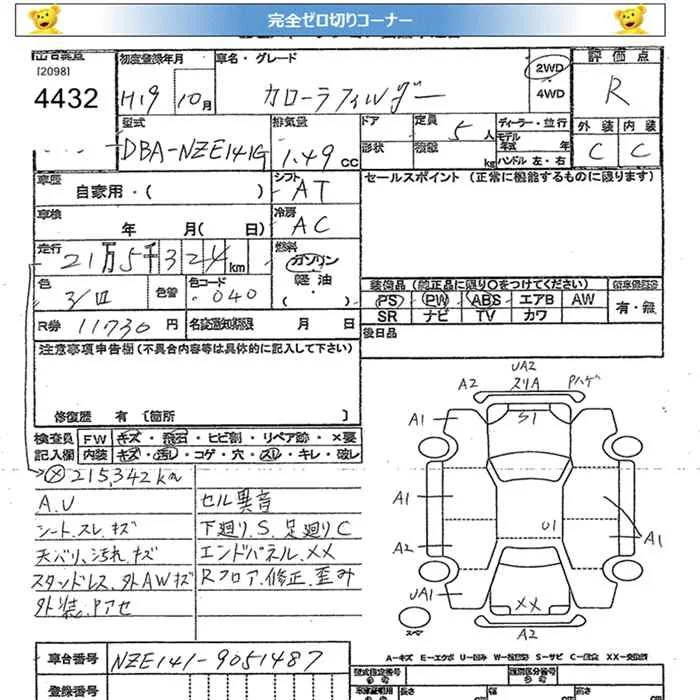 完全ゼロ切りコーナー
[2098]
4432
初度登録年月
H19 10月
車名・グレード
カローラフィルダー
2WD
4WD
評価点
R
外装 内装
C C
型式
DBA-NZE141G
排気量
1.49 cc
ドア
形状
定員
5人
積載
kg
ディーラー・並行
モデル年式 年
ハンドル 左・右
車歴
自家用・( )
シフト
AT
セールスポイント (正常に機能するものに限ります)
車検
年 月( 日)
冷房
AC
走行
21万5千324km
燃料
ガソリン
軽油
・( )
色
シロ
色替
色コード
040
装備品 (純正品に限り○をつけてください)
PS PW ABS エアB AW
SR ナビ TV カワ
有・無
R券 11730円
名変通知期限 月 日
後日品
注意事項申告欄(不具合内容等は具体的に記入して下さい)
修復歴 有 [箇所 ]
検査員 FW キズ・飛石・ヒビ割・リペア跡・×要
記入欄 内装 キズ・汚レ・コゲ・穴・スレ・キレ・破レ
215,342km
A.U
シート.スレ.キズ
天バリ.汚れ.キズ
スタッドレス.外AWキズ
外装.Pアセ
セル異音
下廻り.S.足廻りC
エンドパネル.XX
Rフロア.修正.歪み
UA2
A2 スリA Pハゲ
A1 S1
A1
U1
A2 A1
UA1
XX
スペア A2
A-キズ E-エクボ U-凹み W-補修跡 S-サビ C-腐食 XX-交換済
車台番号 NZE141-9051487
登録番号
型式指定番号
類別区分番号
長さ
幅
高さ